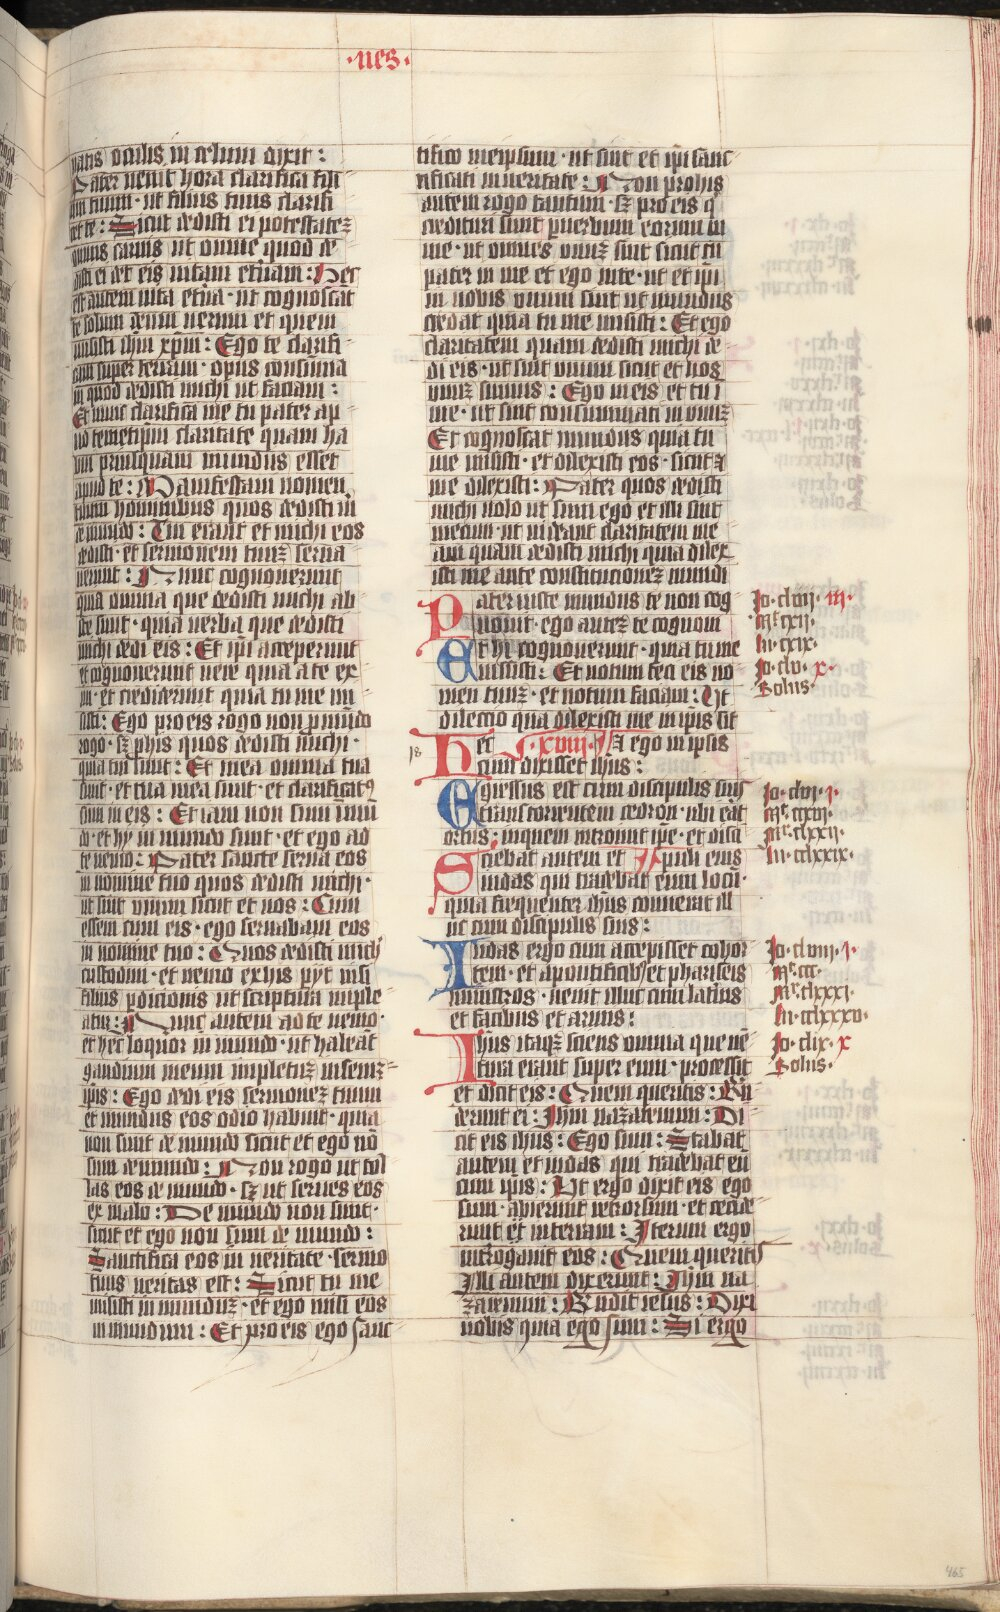 ·nes·
uatis oculis in celum dixit:
Pater uenit hora clarifica fili
um tuum· ut filius tuus clarifi
cet te: Sicut dedisti ei potestatez
omnis carnis ut omne quod de
disti ei det eis uitam et̄nam: Hec
est autem uita et̄na· ut cognoscāt
te solum deum uerum et quem
misisti ih̄m xp̄m: Ego te clarifi
caui super terram· opus consūma
ui quod dedisti michi ut faciam:
Et nunc clarifica me tu pater ap
ud temetip̄m claritate quam ha
bui priusquam mundus esset
apud te: Manifestaui nomen
tuum hominibus quos dedisti m̄
de mundo: Tui erant et michi eos
dedisti· et sermonem tuuz serua
uerunt: Nunc cognouerunt
quia omnia que dedisti michi ab
ste sunt· quia uerba que dedisti
michi dedi eis: Et ip̄i acceperunt
et cognouerunt uere quia a te ex
iui· et crediderunt quia tu me mi
sisti: Ego pro eis rogo non p̱ mūdo
rogo· sz p̱ his quos dedisti michi·
quia tui sunt: Et mea omnia tua
sunt· et tua mea sunt· et clarificatꝯ
sum in eis: Et iam non sum in mū
do· et hy in mundo sunt· et ego ad
te uenio: Pater sancte serua eos
in nomine tuo quos dedisti michi·
ut sint unum sicut et nos: Cum
essem cum eis· ego seruabam eos
in nomine tuo: Quos dedisti mich̄
custodiui· et nemo ex hiis p̱yt nisi
filius p̱dicionis ut scriptura imple
atur: Nunc autem ad te uenio·
et hec loquor in mundo· ut habeāt
gaudium meum impletuz in semz
ip̄is: Ego dedi eis sermonez tuum
et mundus eos odio habuit· quia
non sunt de mundo sicut et ego nō
sum de mundo: Non rogo ut tol
las eos de mundo· sz ut serues eos
ex malo: De mundo non sunt·
sicut et ego non sum de mundo:
Sanctifica eos in ueritate· sermo
tuus ueritas est: Sicut tu me
misisti in munduz· et ego misi eos
in mundum: Et pro eis ego sanc
tifico meipsum· ut sint et ip̄i sanc
tificati in ueritate: Non pro hiis
autem rogo tantum· sz pro eis q̄
credituri sunt p̱ uerbum eorum in
me· ut omnes unuz sint sicut tu
pater in me et ego in te· ut et ip̄i
in nobis unum sint ut mundus
credat quia tu me misisti: Et ego
claritatem quam dedisti michi de
di eis· ut sint unum sicut et nos
unuz sumus: Ego in eis et tu ī
me· ut sint consummati in unuz
Et cognoscat mundus quia tu
me misisti· et dilexisti eos· sicut ⁊
me dilexisti: Pater quos dedisti
michi uolo ut ubi sum ego et illi sint
mecum· ut uideant claritatem me
am quam dedisti michi quia dilex
isti me ante constitucionez mundi
Pater iuste mundus te non cog
nouit· ego autez te cognoui
Et hy cognouerunt· quia tu me
misisti: Et notum feci eis no
men tuuz· et notum faciam: Ut
dilectio qua dilexisti me in ipis sit
Hec ·xviii· Et ego in ipsis
cum dixisset ih̄us:
Egressus est cum discipulis suis
trans torrentem cedron· ubi erāt
ortus· in quem introiuit ip̄e· et disci
Sciebat autem et puli eius
iudas qui tradebat eum locū·
quia frequenter ih̄us conuenerat ill
uc cum discipulis suis:
Iudas ergo cum accepisset cohor
tem· et a pontificibꝯ et phariseis
ministros· uenit illuc cum laternis
et facibus et armis:
Ih̄us itaqz sciens omnia que uē
tura erant super eum· processit
et dicit eis: Quem queritis: Rn̄
derunt ei: Ih̄m nazarenum: Di
cit eis ih̄us: Ego sum: Stabat
autem et iudas qui tradebat eū
cum ip̄is: Ut ergo dixit eis ego
sum· abierunt retrorsum· et cecide
runt et in terram: Iterum ergo
interrogauit eos: Quem queritis
Illi autem dixerunt: Ih̄m na
zarenum: Rn̄dit iesus: Dixi
uobis quia ego sum: Si ergo
18
Jo· clvii· iii·
Lu· cxix·
Jo· clv· x·
Solus·
Jo· clvi· i·
Mr· clxxii·
Lu· cclxxix·
Jo· clviii· i·
Mt· ccc·
Mr· clxxxi·
Lu· cclxxxv·
Jo· clix· x
Solus·
465